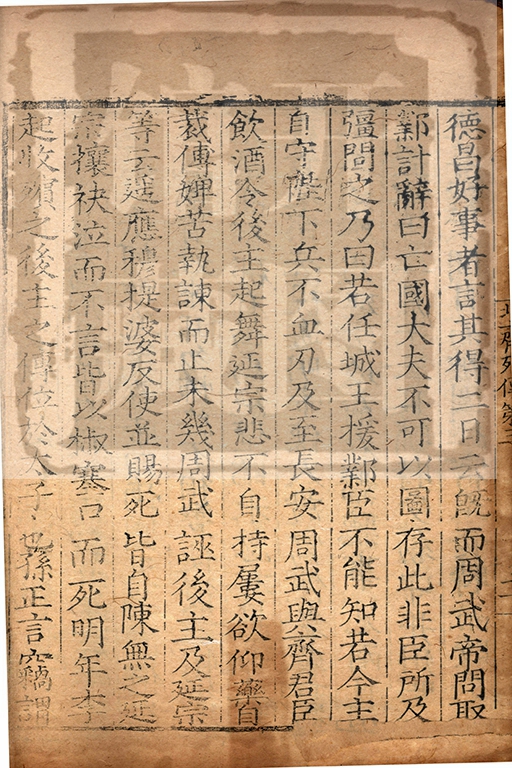 德昌好事者言其得二日云既而周武帝問取
鄴計辭曰亡國大夫不可以圖存此非臣所及
彊問之乃曰若任城王援鄴臣不能知若今主
自守陛下兵不血刃及至長安周武與齊君臣
飲酒令後主起舞延宗悲不自持屢欲仰藥自
裁傅婢苦執諫而止未幾周武誣後主及延宗
等云遥應穆提婆反使並賜死皆自陳無之延
宗攘袂泣而不言皆以椒塞口而死明年李
起收殯之後主之傳位於太子也孫正言竊謂
北齊列傳第三